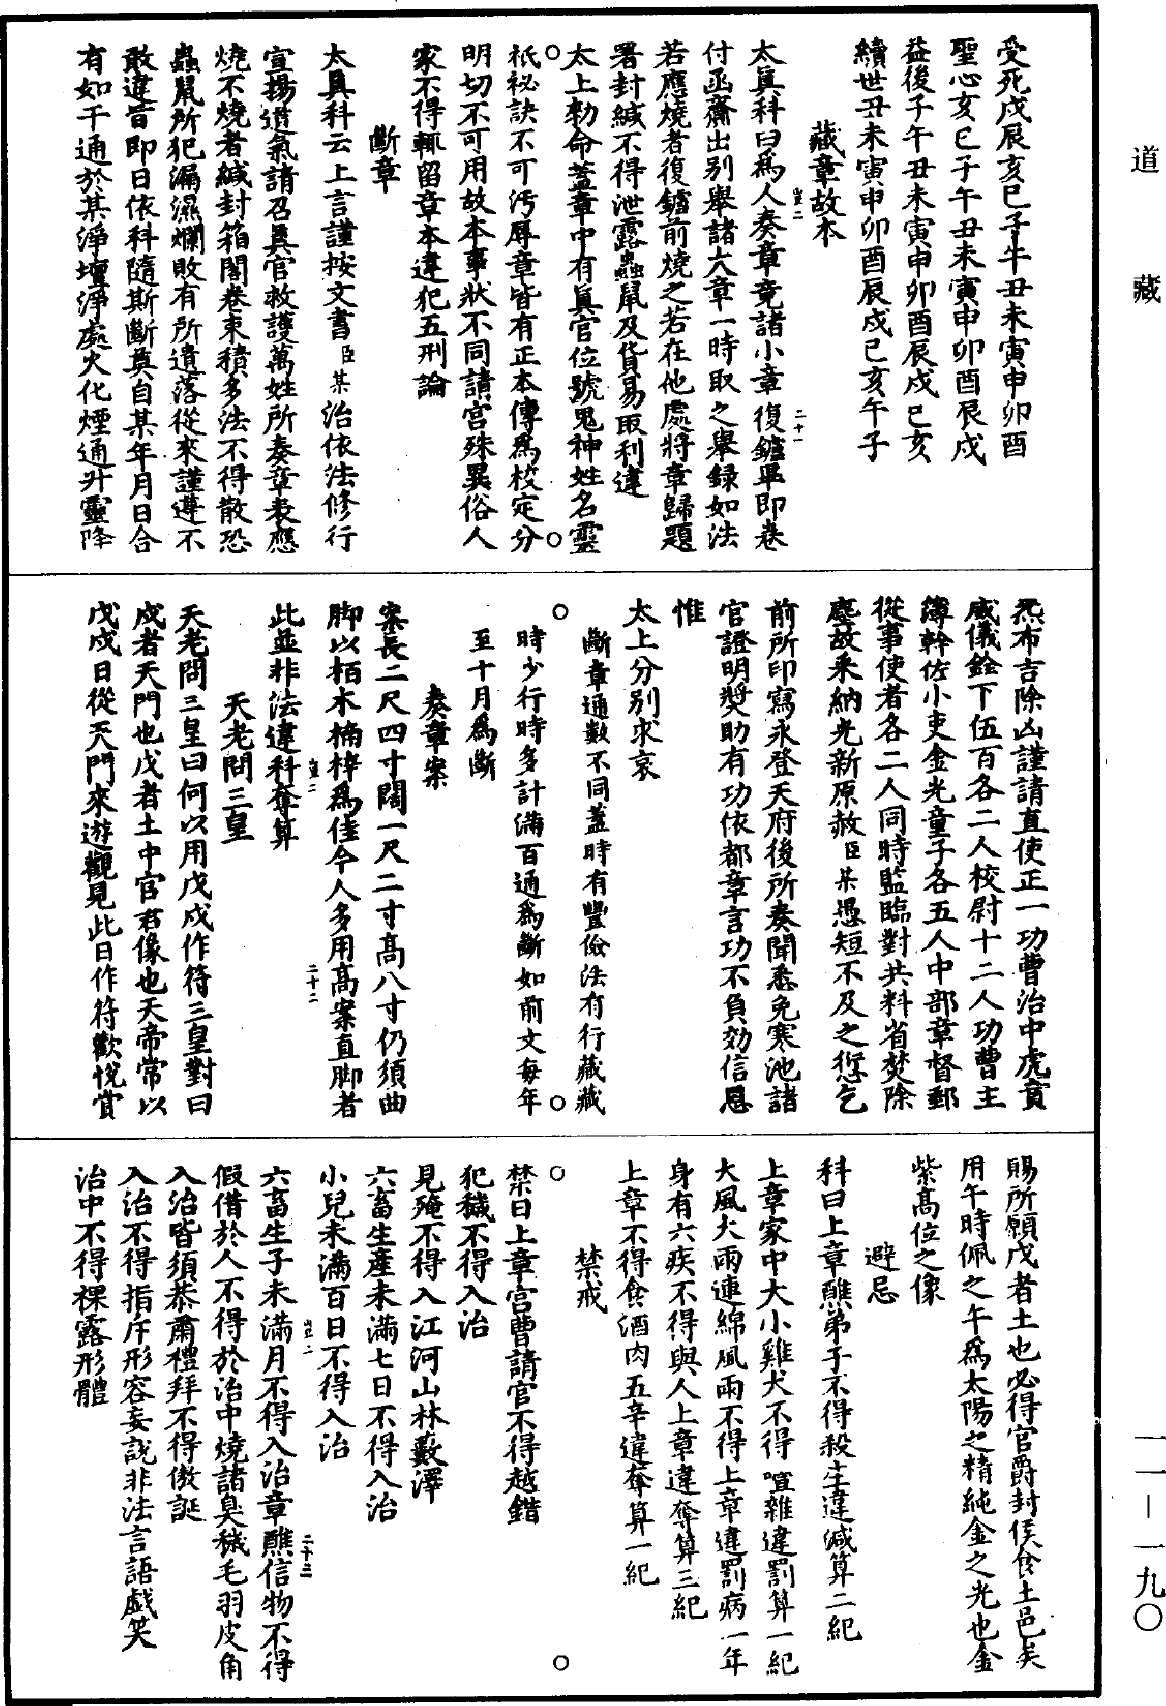 道藏
一一—一九〇
受死戊辰亥巳子午丑未寅申卯酉
聖心亥巳子午丑未寅申卯酉辰戌
益後子午丑未寅申卯酉辰戌巳亥
續世丑未寅申卯酉辰戌巳亥午子
藏章故本
太真科曰為人奏章竟諸小章復鑪畢即卷
付函齋出别舉諸大章一時取之舉録如法
若應燒者復鑪前燒之若在他處將章歸題
署封緘不得泄露蟲鼠及貨易取利違
太上勑命蓋章中有真官位號鬼神姓名靈
祇祕訣不可污辱章皆有正本傳為校定分
明切不可用故本事狀不同請官殊異俗人
家不得輒留章本違犯五刑論
斷章
太真科云上言謹按文書臣某治依法修行
宣揚道氣請召真官救護萬姓所奏章表應
燒不燒者緘封箱閣卷束積多法不得散恐
蟲鼠所犯漏濕爛敗有所遺落從來謹遵不
敢違旨即日依科隨斯斷奠自某年月日合
有如干通於某淨壇淨處火化煙通升靈降
炁布吉除凶謹請直使正一功曹治中虎賁
威儀銓下伍百各二人校尉十二人功曹主
簿幹佐小吏金光童子各五人中部章督郵
從事使者各二人同時監臨對共料省焚除
塵故釆納光新原赦臣某愚短不及之愆乞
前所印寫永登天府後所奏聞悉免寒池諸
官證明奬助有功依都章言功不負効信恩
惟
太上分别求哀
斷章通數不同蓋時有豐儉法有行藏藏
時少行時多計滿百通為斷如前文每年
至十月為斷
奏章案
案長二尺四寸闊一尺二寸高八寸仍須曲
脚以栢木楠梓為佳今人多用高案直脚者
此並非法違科奪算
天老問三皇
天老問三皇曰何以用戊戌作符三皇對曰
戌者天門也戊者土中官君像也天帝常以
戊戌日從天門來遊觀見此日作符歡悅賞
賜所願戊者土也必得官爵封侯食土邑矣
用午時佩之午為太陽之精純金之光也金
紫高位之像
避忌
科曰上章醮弟子不得殺生違減算二紀
上章家中大小雞犬不得喧雜違罰算一紀
大風大雨連綿風雨不得上章違罰病一年
身有六疾不得與人上章違奪算三紀
上章不得食酒肉五辛違奪算一紀
禁戒
禁曰上章官曹請官不得越錯
犯穢不得入治
見殗不得入江河山林藪澤
六畜生產未滿七日不得入治
小兒未滿百日不得入治
六畜生子未滿月不得入治章醮信物不得
假借於人不得於治中燒諸臭穢毛羽皮角
入治皆須恭肅禮拜不得傲誕
入治不得指斥形容妄說非法言語戲笑
治中不得裸露形體